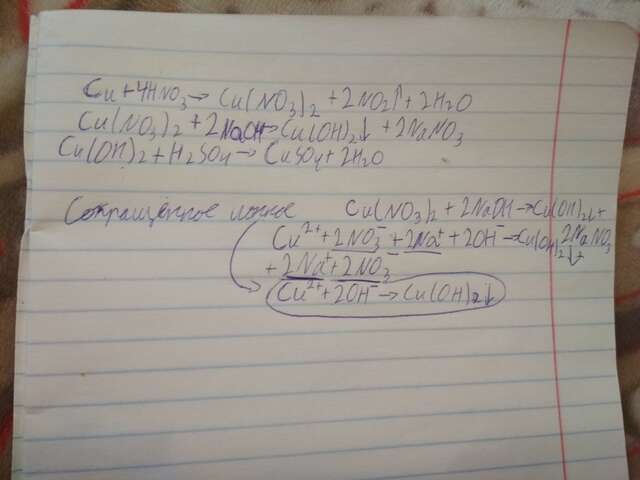 Cu + 4HNO₃ → Cu(NO₃)₂ + 2NO₂↑ + 2H₂O
Cu(NO₃)₂ + 2NaOH → Cu(OH)₂↓ + 2NaNO₃
Cu(OH)₂ + H₂SO₄ → CuSO₄ + 2H₂O
Сокращённое ионное
Cu(NO₃)₂ + 2NaOH → Cu(OH)₂↓ +
2NaNO₃
Cu²⁺ + 2NO₃⁻ + 2Na⁺ + 2OH⁻ → Cu(OH)₂↓ +
+ 2Na⁺ + 2NO₃⁻
Cu²⁺ + 2OH⁻ → Cu(OH)₂↓